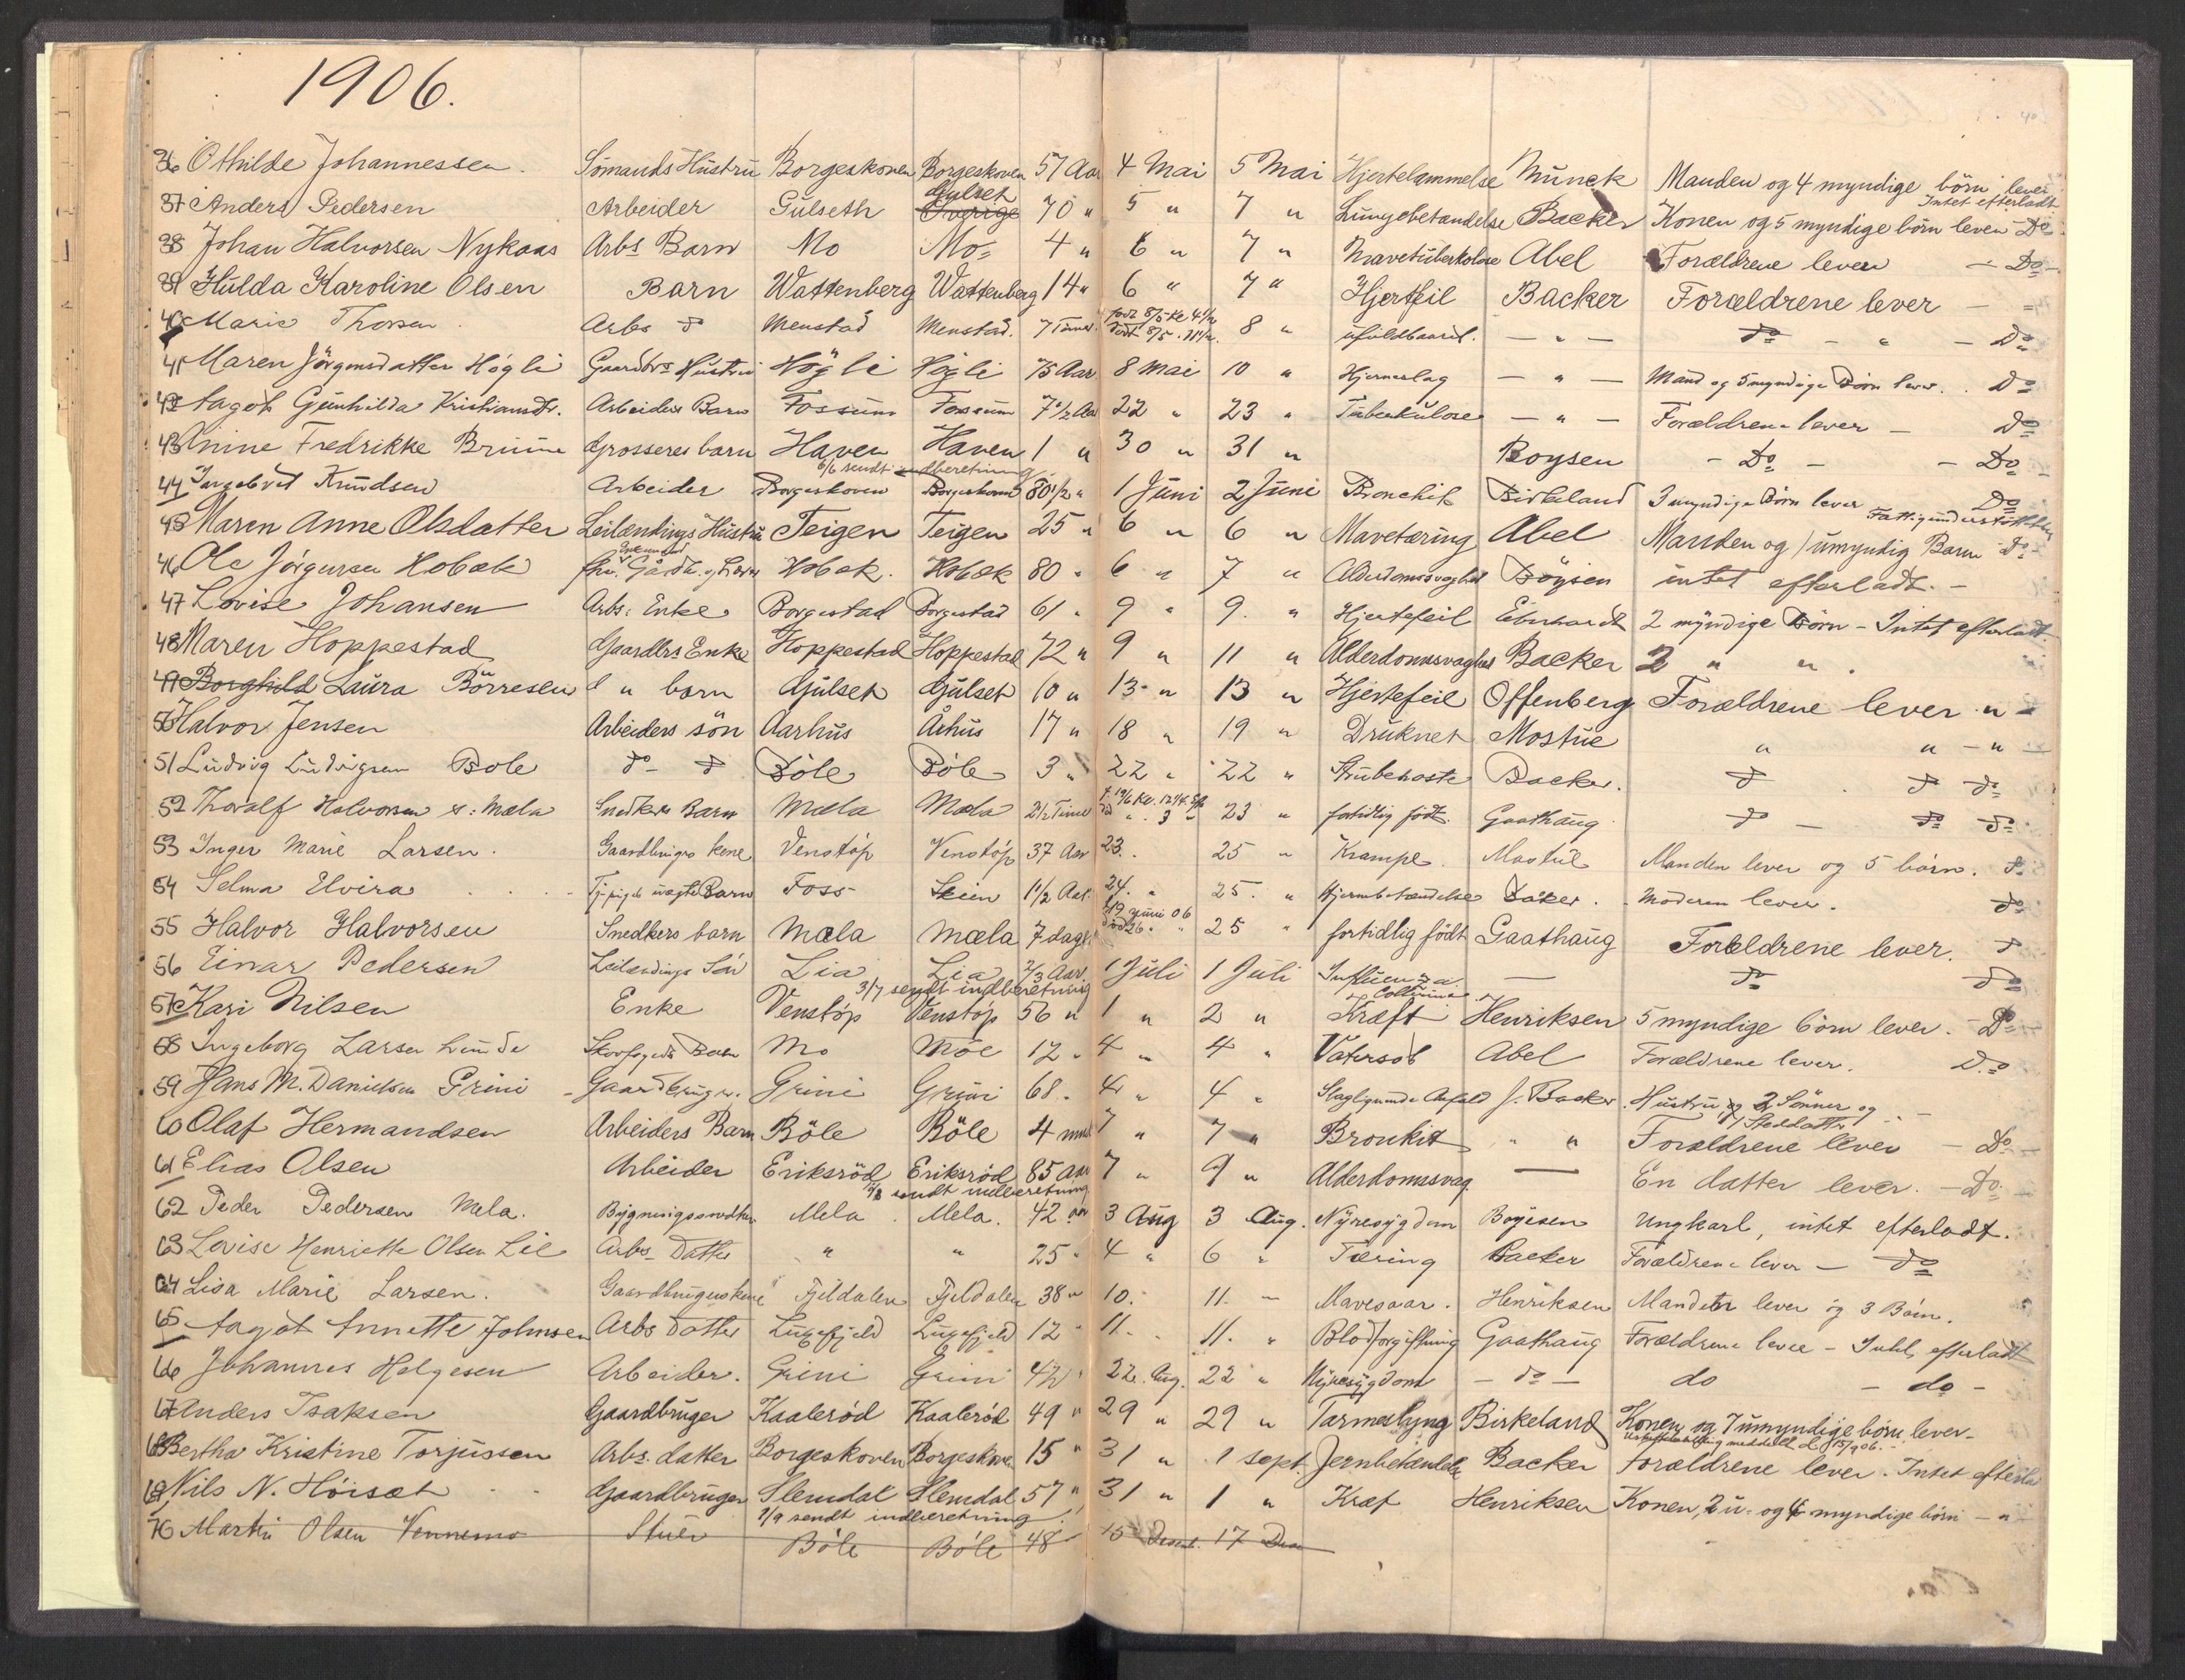 1906.
36 Othilde Johannessen. Sömands Hustru Borgeskoven Borgeskoven 57 Aar 4 Mai 5 Mai Hjertelammelse Munck Manden og 4 myndige börn lever Intet efterladt
37 Anders Pedersen Arbeider Gulseth Sverige Gulset 70 " 5 " 7 " Lungebetændelse Backer Konen og 5 myndige börn lever Do
38 Johan Halvorsen Nykaas Arbs Barn Mo Mo 4 " 6 " 7 " Mavetuberkolose Abel Forældrene lever - Do -
39 Hulda Karoline Olsen Barn Wattenberg Wattenberg 14 " 6 " 7 " Hjertfeil Backer Forældrene lever -
40 Marie Thorsen Arbs do Menstad Menstad. 7 Timer. Född 8/5 Kl 4 1/2 Död 8/5 . 11 1/2. 8 " ufuldbaaret. - " - do - " - Do
41 Maren Jörgensdatter Högli Gaardbrs Hustru Högli Högli 75 Aar 8 Mai 10 " Hjerneslag - " - Mand og 5 myndige Börn lever. Do
42 Aagot Gunhilda Kristiansdtr. Arbeiders Barn Fossum Fossum 7 1/2 Aar 22 " 23 " Tuberkulose - " - Forældrene lever - Do
43 Anine Fredrikke Bruun Grosseres barn Haven Haven 1 " 30 " 31 " Boysen - Do - - Do
6/6 sendt indberetning
44 Ingebret Knudsen Arbeider Borgeskoven Borgeskoven 80 1/2 " 1 Juni 2 Juni Bronchit Birkeland 3 myndige Börn lever Do Fattigunderstöttelse
45 Maren Anne Olsdatter Leilendings Hustru Teigen Teigen 25 " 6 " 6 " Mavetæring Abel Manden og 1 umyndig Barn Do -
46 Ole Jörgensen Hobæk fhv. Enkemand Gårdb. Hobæk. Hobæk 80 " 6 " 7 " Alderdomssvaghed Böysen intet efterladt. -
47 Lovise Johansen Arbs: Enke Borgestad Borgestad 61 " 9 " 9. " Hjertefeil Eberhardt 2 myndige Börn - Intet efterladt.
48 Maren Hoppestad Gaardbrs Enke Hoppestad Hoppestad 72 " 9 " 11 " Alderdomssvaghed Backer 2 " " .
49 Borghild Laura Börresen " barn Gulset Gulset 10 " 13 " 13 " Hjertefeil Offenberg Forældrene lever " -
50 Halvor Jensen Arbeiders sön Aarhus Århus 17 " 18 " 19 " Druknet Mostue " " - "
51 Ludvig Ludvigsen Bole do - do Böle Böle 3 " 22 " 22 " Strubehoste Backer. do do do
52 Thoralf Halvorsen Mæla Snedkers Barn Mæla Mæla 2 1/2 Time f. 19/6 Kl. 12 1/4 död " 3 23 " fortidlig födt. Gaathaug do - do do
53 Inger Marie Larsen. Gaardbrugers kone Venstöp Venstöp 37 Aar 23. 25 " Krampe. Mostue Manden lever og 5 börn. do
54 Selma Elvira Tj. piges uægte Barn Foss Skien 1 1/2 Aar. 24. " 25. " Hjernebetændelse Baker. Moderen lever. do
55 Halvor Halvorsen Snedkers barn Mæla Mæla 7 dage f 19 juni 06 död 26. " 25 " fortidlig födt Gaathaug Foreldrene lever. do
56 Einar Pedersen Leilendings Sön Lia Lia 2/3 Aar 1 Juli 1 Juli Influenza - do do
3/7 sendt indberetning
57 Kari Nilsen Enke Venstöp Venstöp 56 " 1 " 2 " Kræft Henriksen 5 myndige börn lever. Do
58 Ingeborg Larsen Lunde Skovfogeds Barn Mo Moe 12 " 4 " 4 " Vatersot Abel Forældrene lever. Do
59 Hans M. Danielsen Grini - Gaardbruger. Grini Grini 68. 4 " 4 " Slaglignende Anfald J. Backer. Hustru, og 2 Sönner og 1 Steddatter -
60 Olaf Hermandsen Arbeiders Barn Böle Böle 4 mnd 7 " 7 " Bronkit " " Forældrene lever - Do -
61 Elias Olsen Arbeider Eriksröd Eriksröd 85 Aar 7 " 9 " Alderdomssvag. - En datter lever. - Do.
sendt indberetning
62 Peder Pedersen Mela. Bygningssnedker Mela. Mela. 42 aar 3 Aug 3 Aug. Nyresygdom Boyesen Ungkarl, intet efterladt.
63 Lovise Henriette Olsen Lie Arbs Datter " " 25 " 4 " 6 " Tæring Backer Forældrene lever - do
64 Lisa Marie Larsen. Gaardbrugerskone Fjeldalen Fjeldalen 38 " 10. 11. - Mavesaar. Henriksen Manden lever og 3 Börn.
65 Aagot Annette Johnsen Arbs Datter Luxefjeld Luxefjeld 12 " 11. " 11. " Blodforgiftning Gaathaug Forældrene lever - Intet efterladt
66 Johannes Helgesen Arbeider. Grini Grini 42 " 22. Aug. 22 " Nyresygdom - do - do - do -
67 Anders Isaksen Gaardbruger Kaaleröd Kaaleröd 49 " 29 " 29 " Tarmeslyng Birkeland Konen og 7 umyndige börn lever - meddelt d. 15/9 06. -
68 Bertha Kristine Torjussen Arbs. datter Borgeskoven Borgeskoven 15 " 31 " 1 sept. Jernbetændelse Backer Forældrene lever. Intet efterla
69 Nils N. Höisæt Gaardbruger Slemdal Slemdal 57 " 31 " 1 " Kræf Henriksen Konen, 2 u- og 4 myndige börn - " -
1/9 sendt indberetning
70 Martin Olsen Vennemo Stuer Böle Böle 48 " 15 Desemb. 17 Des